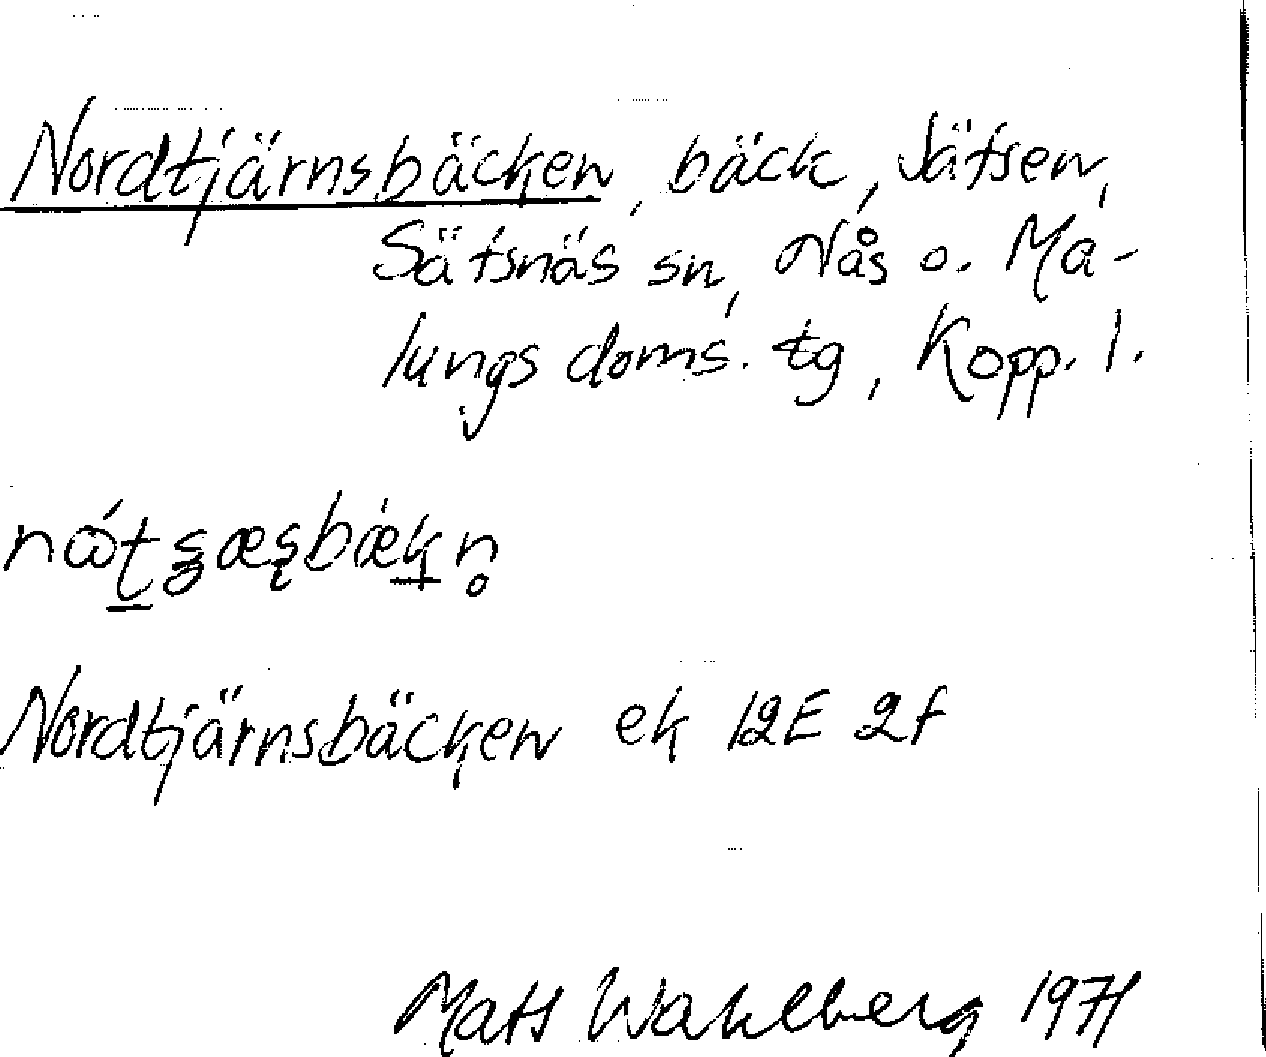 Nordtjärnsbäcken, bäck, Jätsen,
Sätsnäs sn, Nås o. Ma-
lungs doms. tg, Kopp. l.
Nordtjärnsbäcken ek 12E 2f
Mats Wahlberg 1971